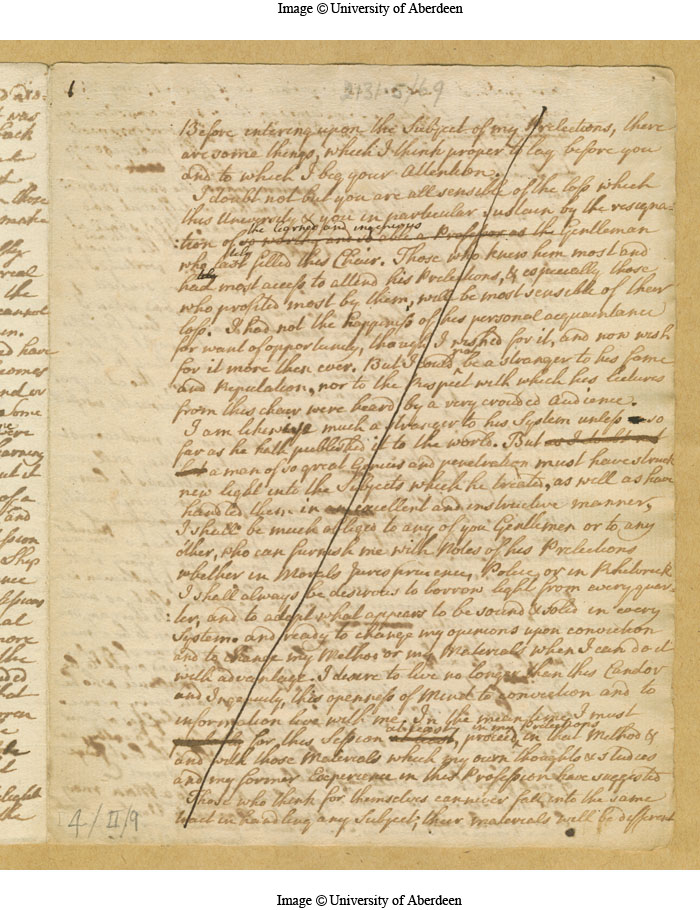 Image © University of Aberdeen
1
2131.5/69
Before intering upon the Subject of my Prelections, there
are some things, which I think proper to lay before you
and to which I beg your Attention.
I doubt not but you are all sensible of the loss which
this University & you in particular sustain by the resigna-
the learned and ingenious
:tion of so worth and so able a Professor as the Gentleman
tely
who last filled this Chair. Those who knew him most and
had most access to attend his Prelections, & especially those
who profited most by them, will be most sensible of their
loss. I had not the happiness of his personal acquaintance
for want of opportunity, though I wished for it, and now wish
for it more then ever. But I could not be a stranger to his fame
and Reputation, nor to the Respect with which his lectures
from this chair were heard by a very crouded Audience.
I am likewise much a stranger to his System unless so
far as he hath published it to the world. But
a man of so great Genius and penetration must have struck
new light into the Subjects which he treated, as well as have
handled them in an excellent and instructive manner,
I shall be much obliged to any of you Gentlemen or to any
other, who can furnish me with Notes of his Prelections
whether in Morals Jurisprudence, Police, or in Rhetorick
I shall always be desirous to borrow light from every quar-
:ter, and to adopt what appears to be sound & solid in every
System. and ready to change my opinions upon conviction
and to change my Method or my Materials when I can do it
with advantage. I desire to live no longer than this Candor
and Ingenuity, this openness of Mind to conviction and to
information live with me. In the mean time I must
at least in my Prelections
for this Session proceed in that Method &
and with those Materials which my own thoughts & studies
and my former Experience in this Profession have suggested
Those who think for themselves can never fall into the same
tract in handling any Subject; their materials will be different
4/II/9
Image © University of Aberdeen